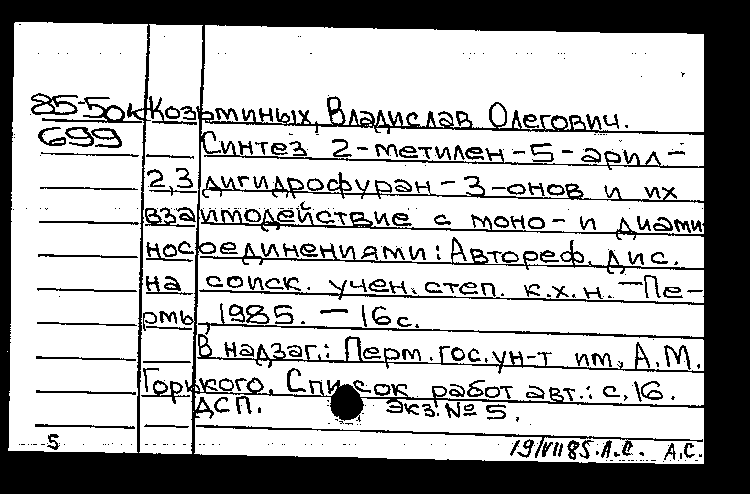 85-5ок Козьминых, Владислав Олегович.
699 Синтез 2-метилен-5-арил-
2,3 дигидрофуран-3-онов и их
взаимодействие с моно- и диами
носоединениями: Автореф. дис.
на соиск. учен. степ. к.х.н. — Пе-
рмь, 1985. — 16 с.
В надзаг.: Перм. гос. ун-т им. А.М.
Горького. Список работ авт.: с. 16.
ДСП. Экз № 5.
5 19/VII 85. А.С. А.С.